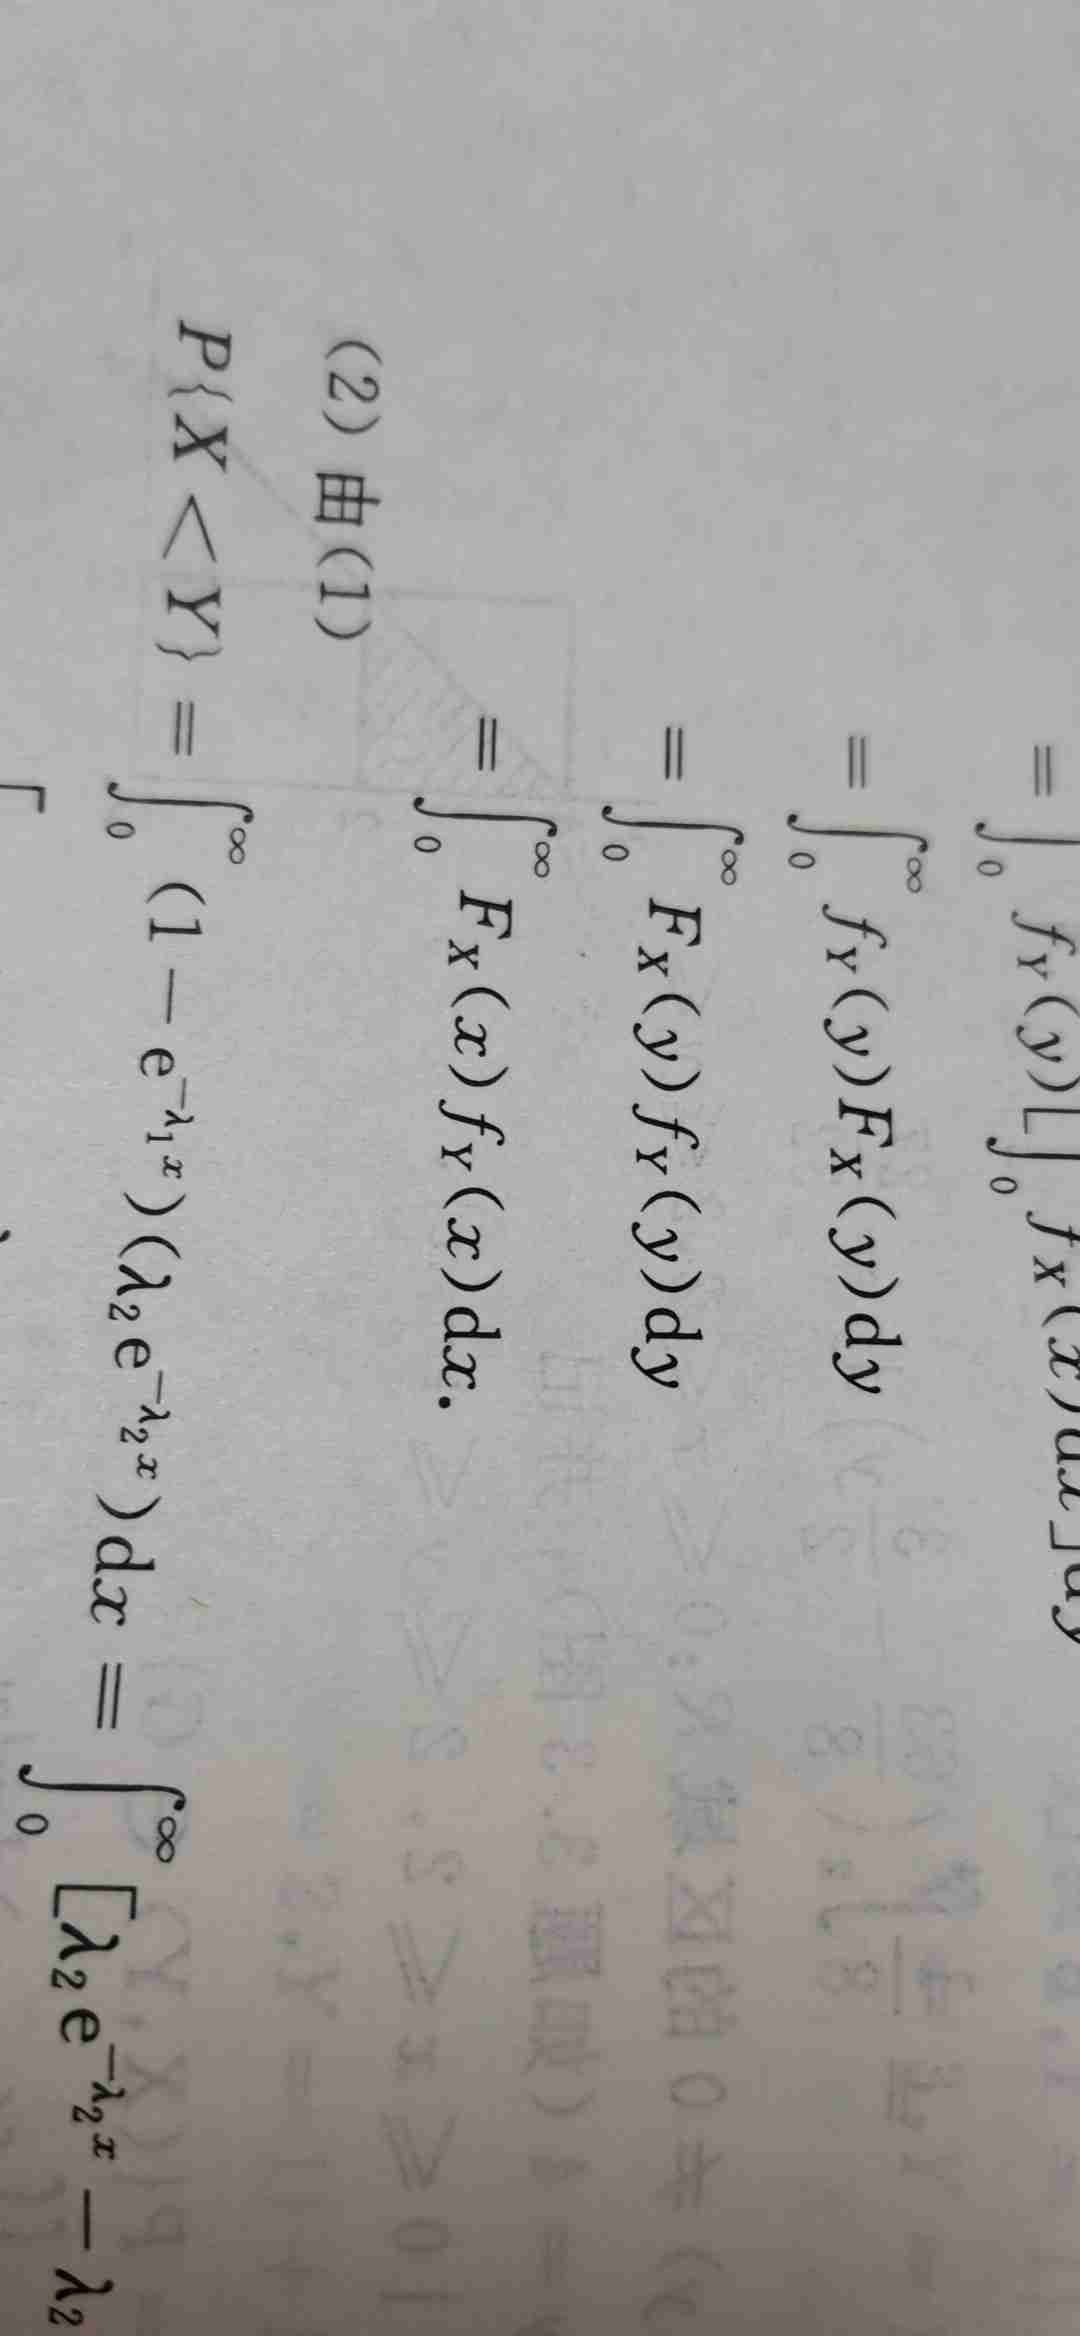 = ∫₀ f_Y(y)[∫₀ f_X(x)dx]dy
= ∫₀^∞ f_Y(y)F_X(y)dy
= ∫₀^∞ F_X(y)f_Y(y)dy
= ∫₀^∞ F_X(x)f_Y(x)dx.
(2) 由(1)
P{X < Y} = ∫₀^∞ (1 − e^{−λ₁x})(λ₂e^{−λ₂x})dx = ∫₀^∞ [λ₂e^{−λ₂x} − λ₂